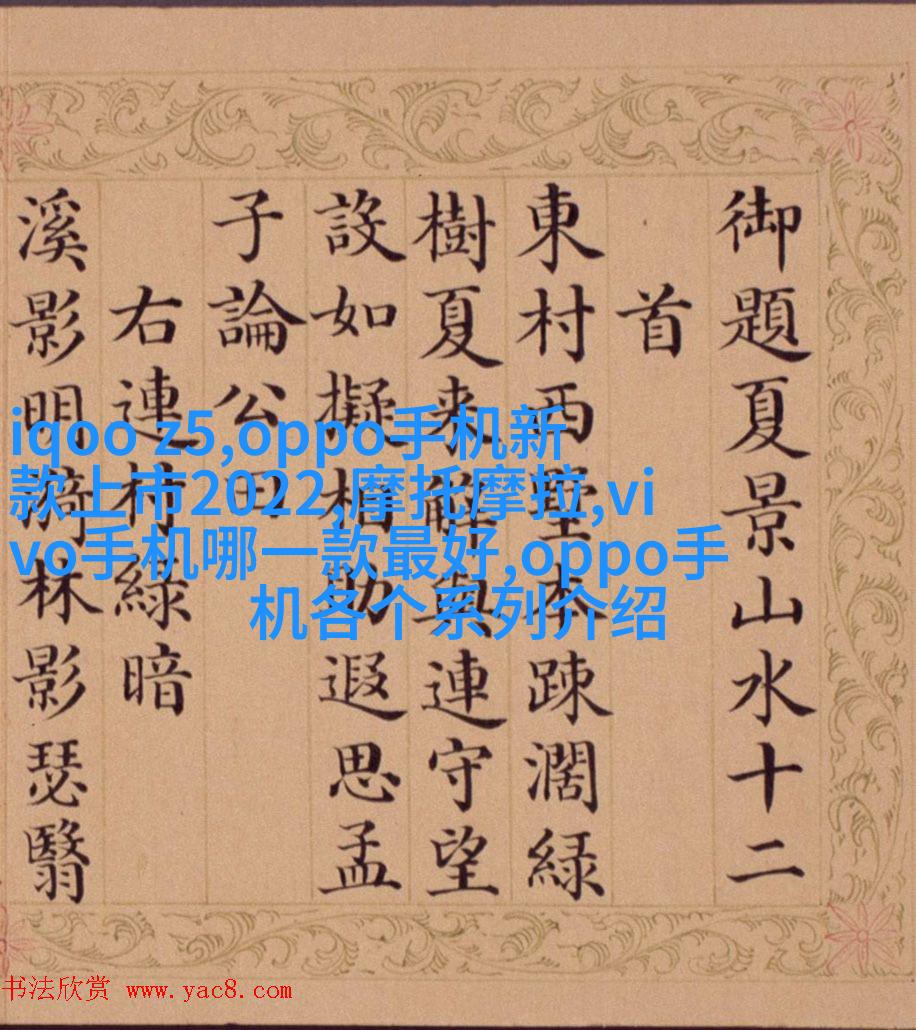 御題夏景山水十二
首
東村西墅本踈濶緑
樹夏来解與連守望
設如擬相助遐思孟
子論公田
右連村緑暗
溪影明漪林影瑟翳
iqoo z5,oppo手机新
款上市2022,摩托摩拉,vi
vo手机哪一款最好,oppo手
机各个系列介绍
书法欣赏 www.yac8.com